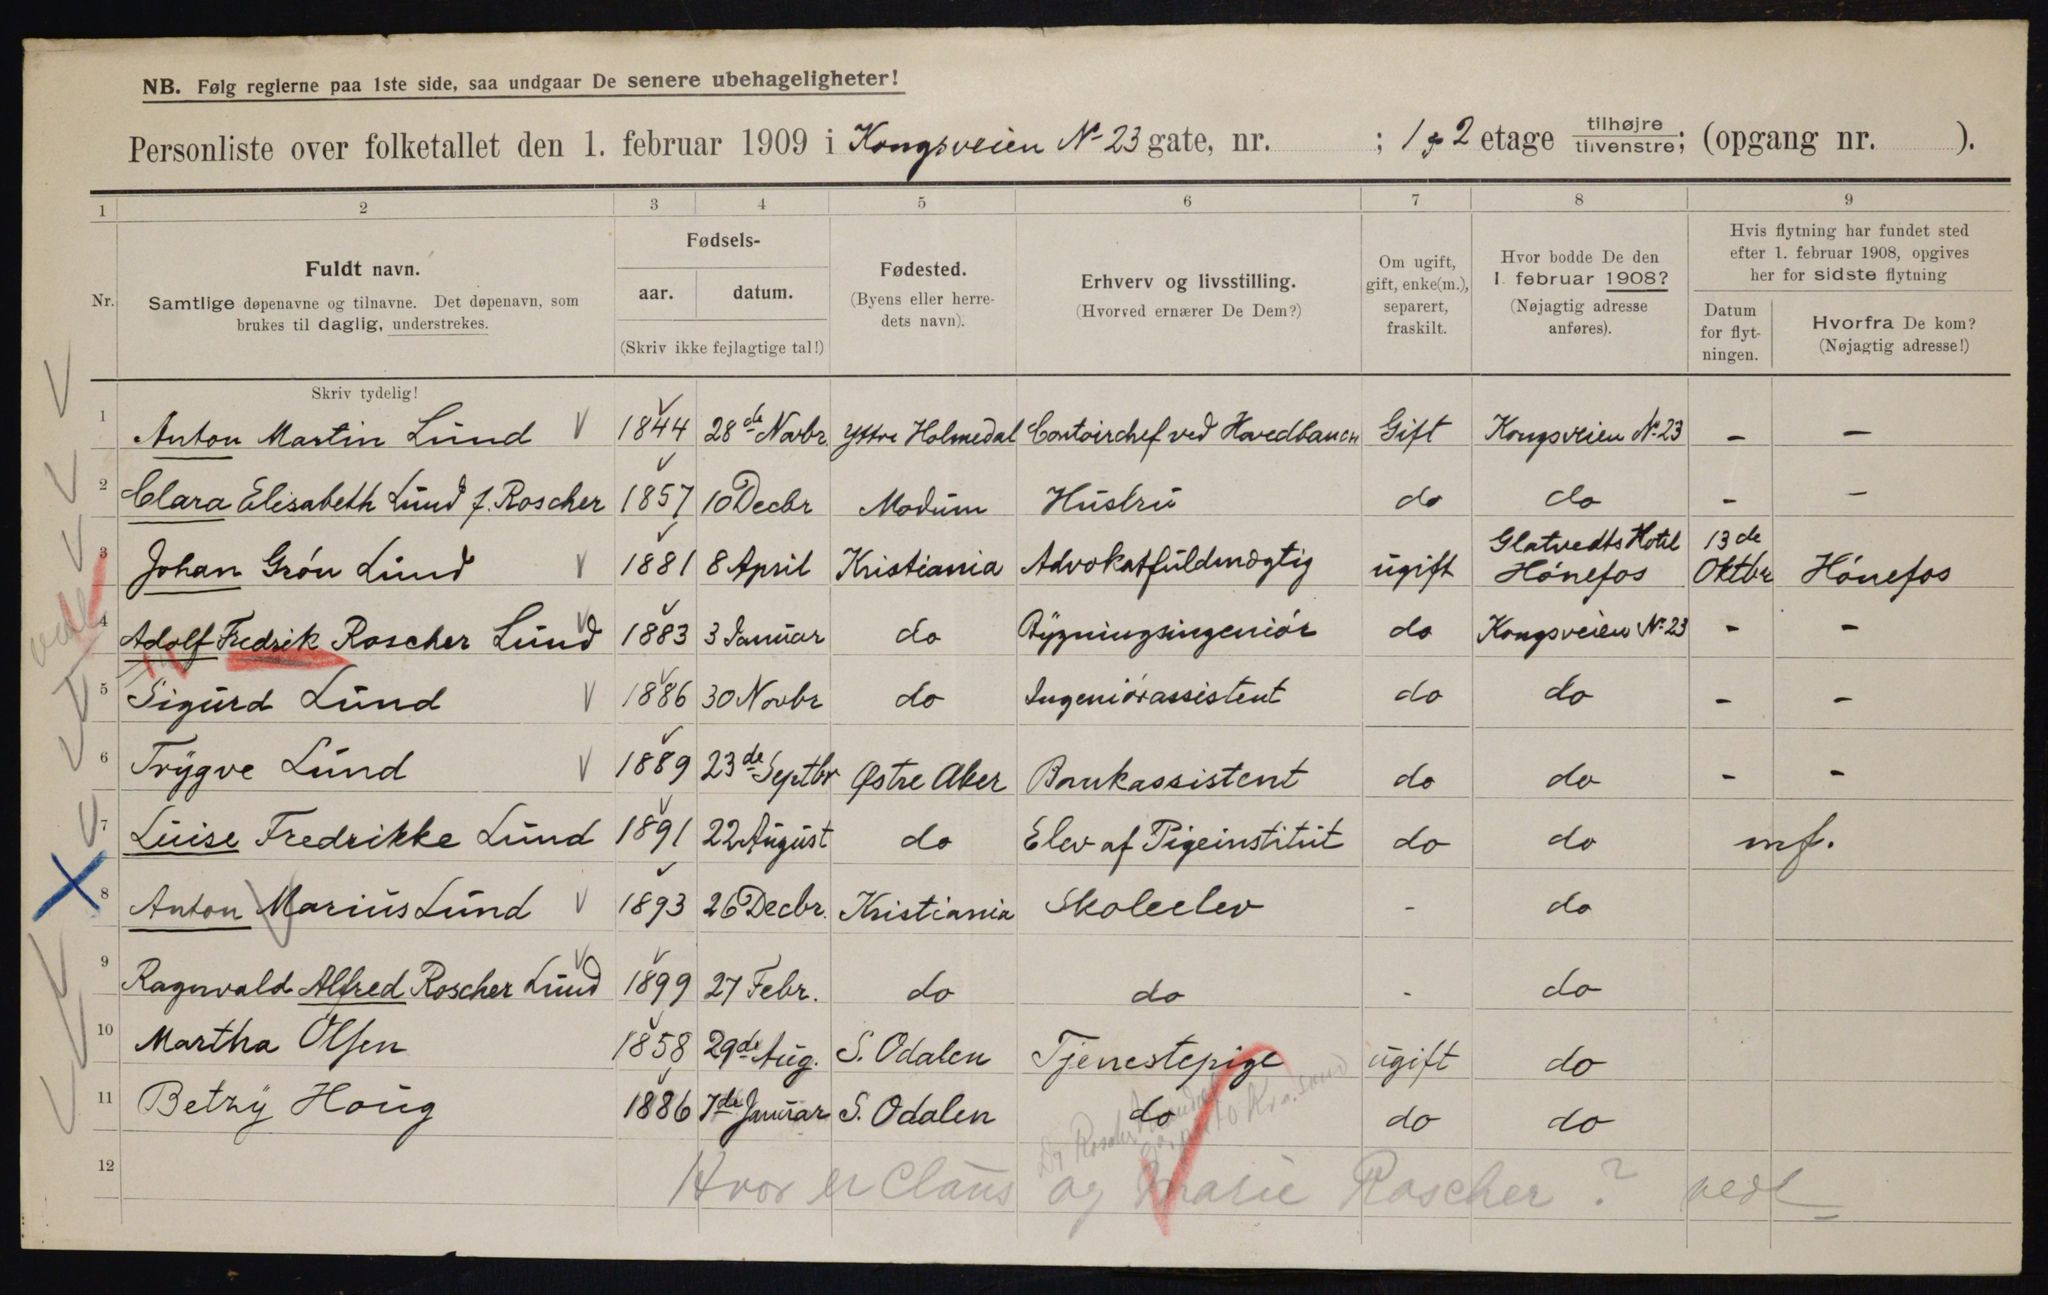 NB. Følg reglerne paa 1ste side, saa undgaar De senere ubehageligheter!
Personliste over folketallet den 1. februar 1909 i Kongsveien No 23 gate, nr. ; 1 & 2 etage tilhøjre tilvenstre; (opgang nr. ).
1 2 3 4 5 6 7 8 9
Nr.
Fuldt navn.
Samtlige døpenavne og tilnavne. Det døpenavn, som
brukes til daglig, understrekes.
Skriv tydelig!
Fødsels-
aar. datum.
(Skriv ikke fejlagtige tal!)
Fødested.
(Byens eller herre-
dets navn).
Erhverv og livsstilling.
(Hvorved ernærer De Dem?)
Om ugift,
gift, enke(m.),
separert,
fraskilt.
Hvor bodde De den
1. februar 1908?
(Nøjagtig adresse
anføres).
Hvis flytning har fundet sted
efter 1. februar 1908, opgives
her for sidste flytning
Datum
for flyt-
ningen.
Hvorfra De kom?
(Nøjagtig adresse!)
1 Anton Martin Lund 1844 28de Novbr. Yttre Holmedal Contoirchef ved Hovedbanen Gift Kongsveien No 23 - -
2 Clara Elisabeth Lund f. Roscher 1857 10 Decbr Modum Hustru do do - -
3 Johan Grón Lund 1881 8 April Kristiania Advokatfuldmægtig ugift Glatvedts Hotel Hónefos 13de Oktbr Hónefos
4 Adolf Fredrik Roscher Lund 1883 3 Januar do Bygningsingeniór do Kongsveien No 23 - -
5 Sigurd Lund 1886 30 Novbr do Ingeniórassistent do do - -
6 Trygve Lund 1889 23de Septbr Østre Aker Bankassistent do do - -
7 Luise Fredrikke Lund 1891 22 August do Elev af Pigeinstitut do do mf.
8 Anton Marius Lund 1893 26 Decbr. Kristiania Skoleelev - do
9 Ragnvald Alfred Roscher Lund 1899 27 Febr. do do - do
10 Martha Olsen 1858 29de Aug. S. Odalen Tjenestepige ugift do
11 Betzy Houg 1886 7de Januar S. Odalen do do do
12 Hvor er Claus og Marie Roscher? vedl